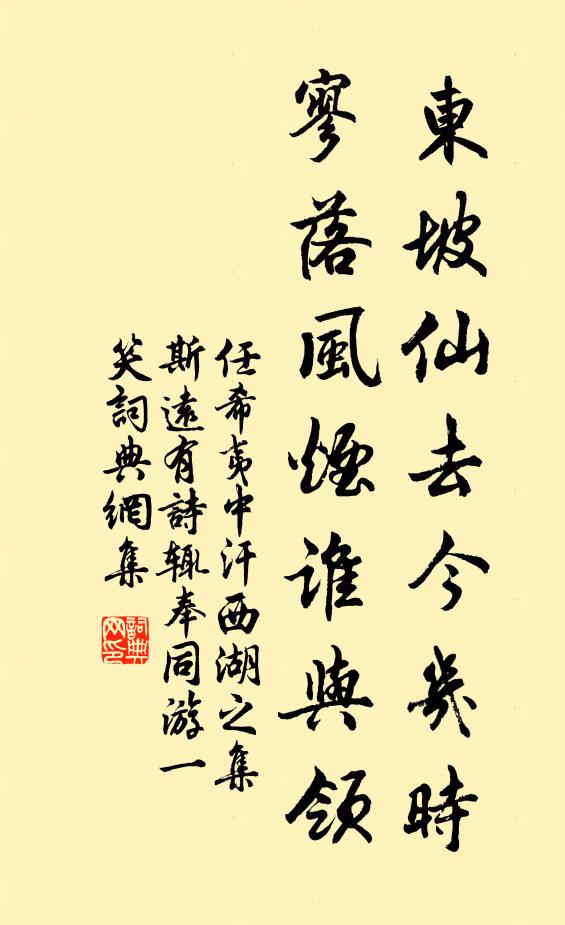 東坡仙去今幾時
寥落風煙誰與領
任希夷中汗西湖之集
斯遠有詩輒奉同游一
笑詞典網集
詞典
网印